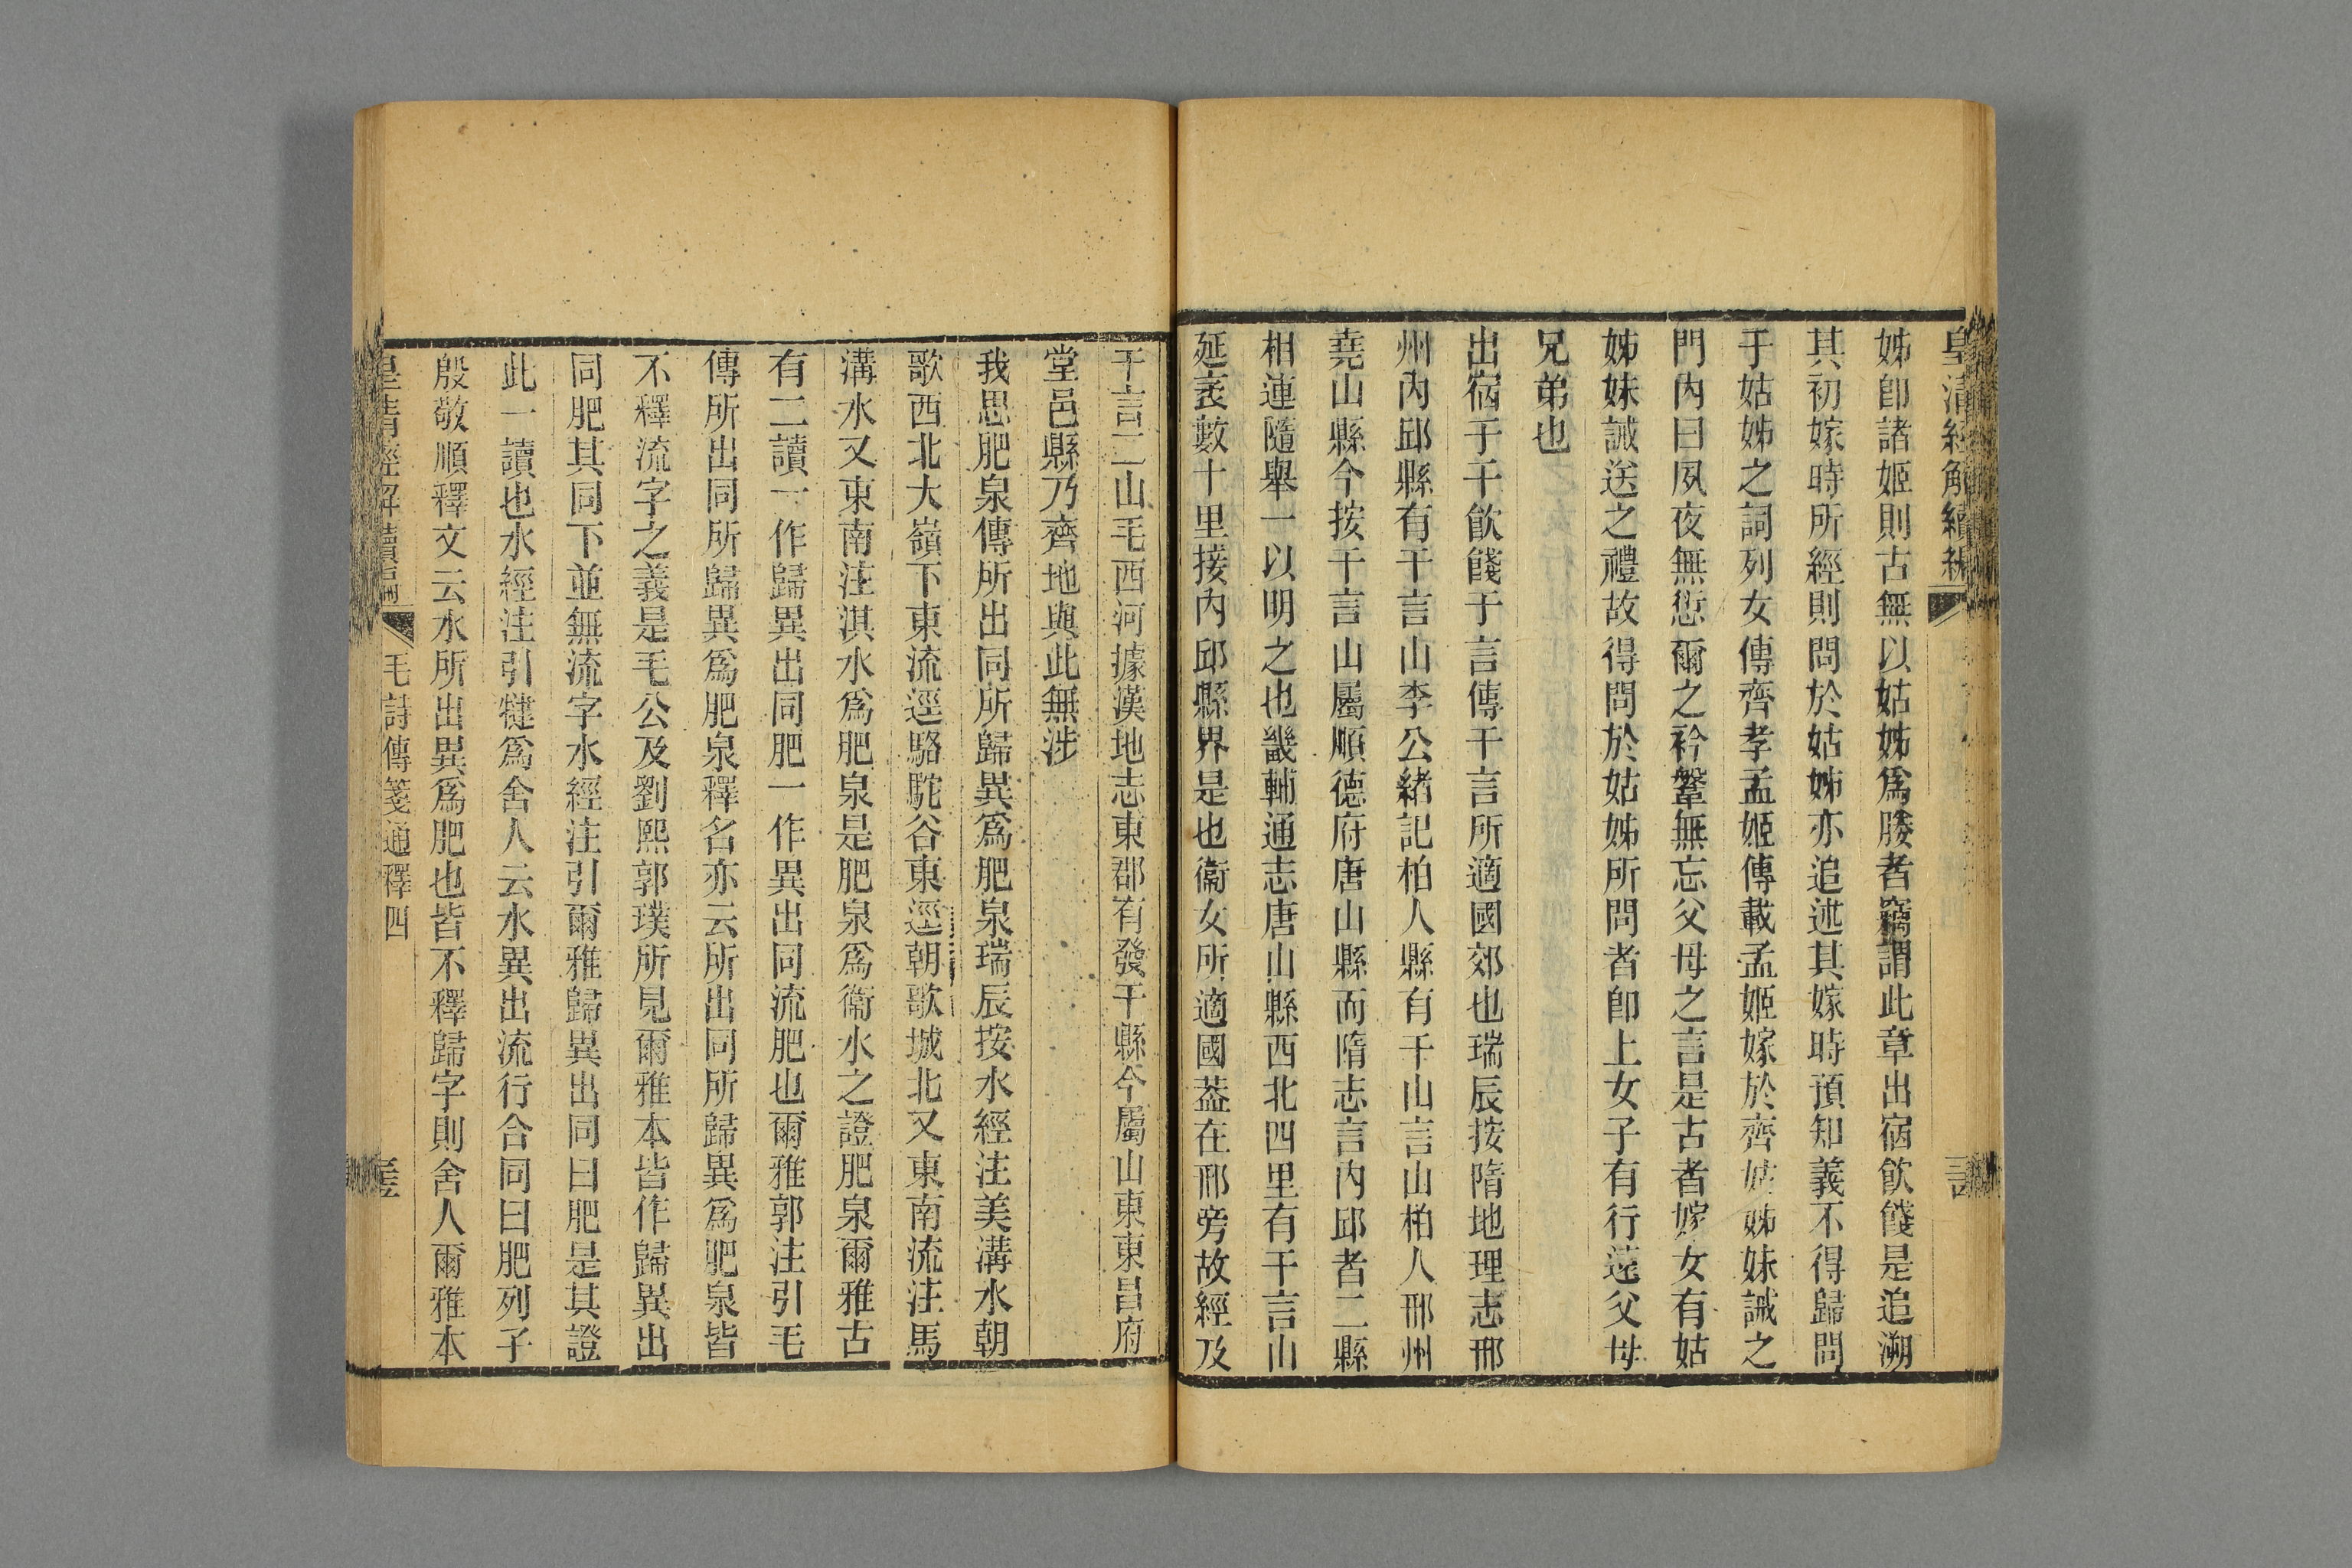 皇清經解續編
姊卽諸姬則古無以姑姊爲媵者竊謂此章出宿飮餞是追溯
其初嫁時所經則問於姑姊亦追述其嫁時預知義不得歸問
于姑姊之詞列女傳齊孝孟姬傳載孟姬嫁於齊姑姊妹誡之
門內曰夙夜無愆爾之衿鞶無忘父母之言是古者嫁女有姑
姊妹誡送之禮故得問於姑姊所問者卽上女子有行遠父母
兄弟也
出宿于干飮餞于言傳干言所適國郊也瑞辰按隋地理志邢
州內邱縣有干言山李公緒記柏人縣有干山言山柏人邢州
堯山縣今按干言山屬順德府唐山縣而隋志言內邱者二縣
相連隨舉一以明之也畿輔通志唐山縣西北四里有干言山
延袤數十里接內邱縣界是也衞女所適國葢在邢旁故經及
干言二山毛西河據漢地志東郡有發干縣今屬山東東昌府
堂邑縣乃齊地與此無涉
我思肥泉傳所出同所歸異爲肥泉瑞辰按水經注美溝水朝
歌西北大嶺下東流逕駱駝谷東逕朝歌城北又東南流注馬
溝水又東南注淇水爲肥泉是肥泉爲衞水之證肥泉爾雅古
有二讀一作歸異出同肥一作異出同流肥也爾雅郭注引毛
傳所出同所歸異爲肥泉釋名亦云所出同所歸異爲肥泉皆
不釋流字之義是毛公及劉熙郭璞所見爾雅本皆作歸異出
同肥其同下並無流字水經注引爾雅歸異出同曰肥是其證
此一讀也水經注引犍爲舍人云水異出流行合同曰肥列子
殷敬順釋文云水所出異爲肥也皆不釋歸字則舍人爾雅本
皇清經解續編 毛詩傳箋通釋四